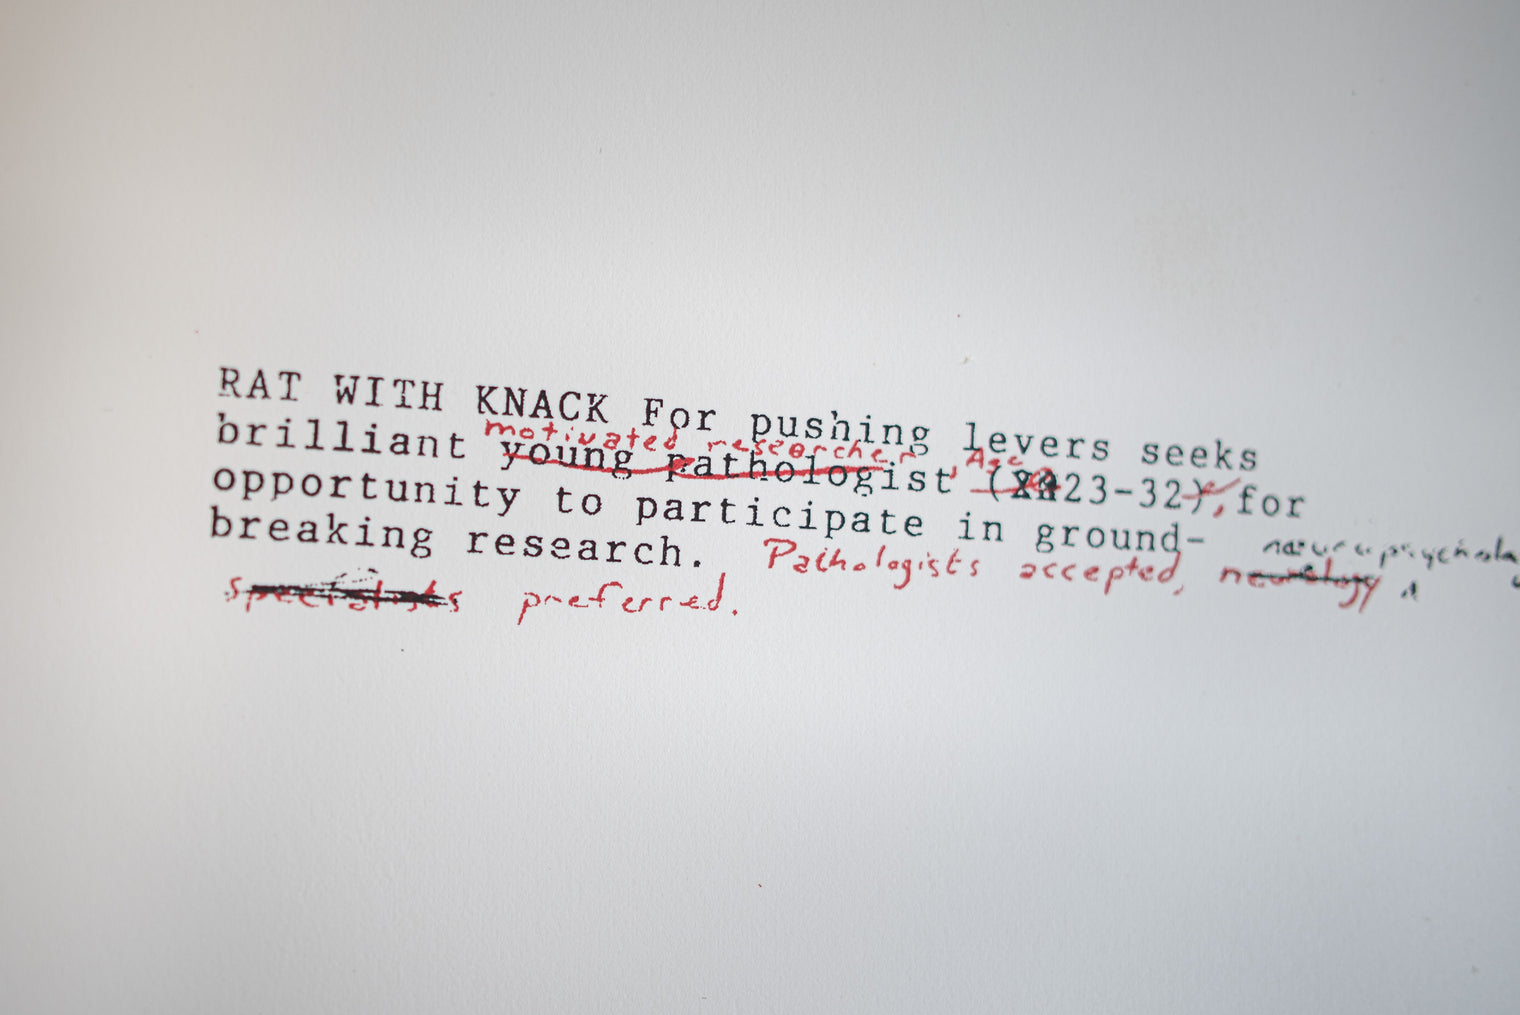 RAT WITH KNACK For pushing levers seeks
motivated researcher, Age
brilliant young pathologist (23-32), for
opportunity to participate in ground-
breaking research. Pathologists accepted, neurology
specialists preferred.